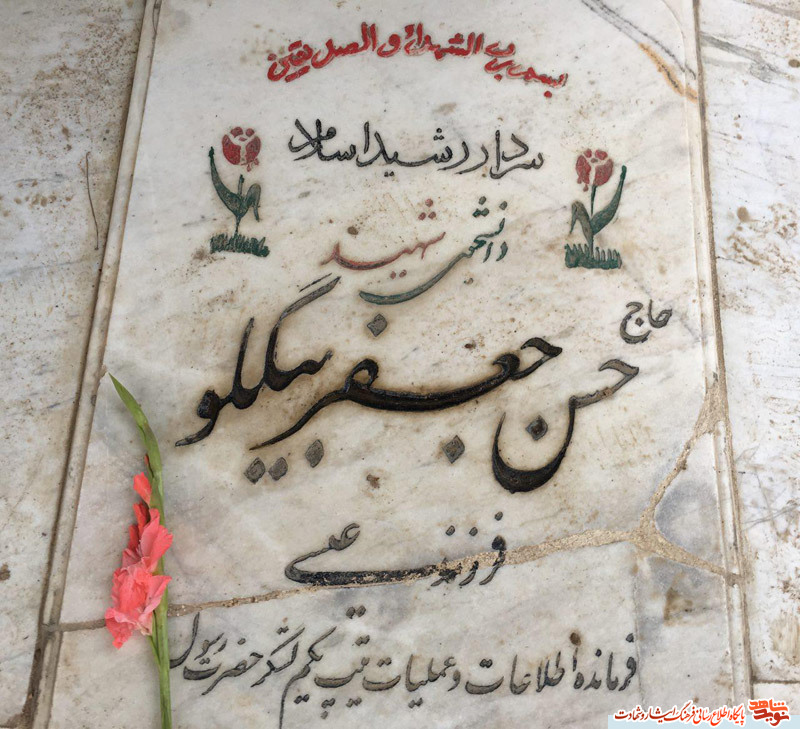 بسم رب الشهداء و الصدیقین
سردار رشید اسلام
دانشجوی شهید
حاج
حسن جعفر بیگلو
فرزند عیسی
فرمانده اطلاعات و عملیات تیپ یکم لشگر حضرت رسول
نوید شاهد پایگاه اطلاع رسانی فرهنگ ایثار و شهادت